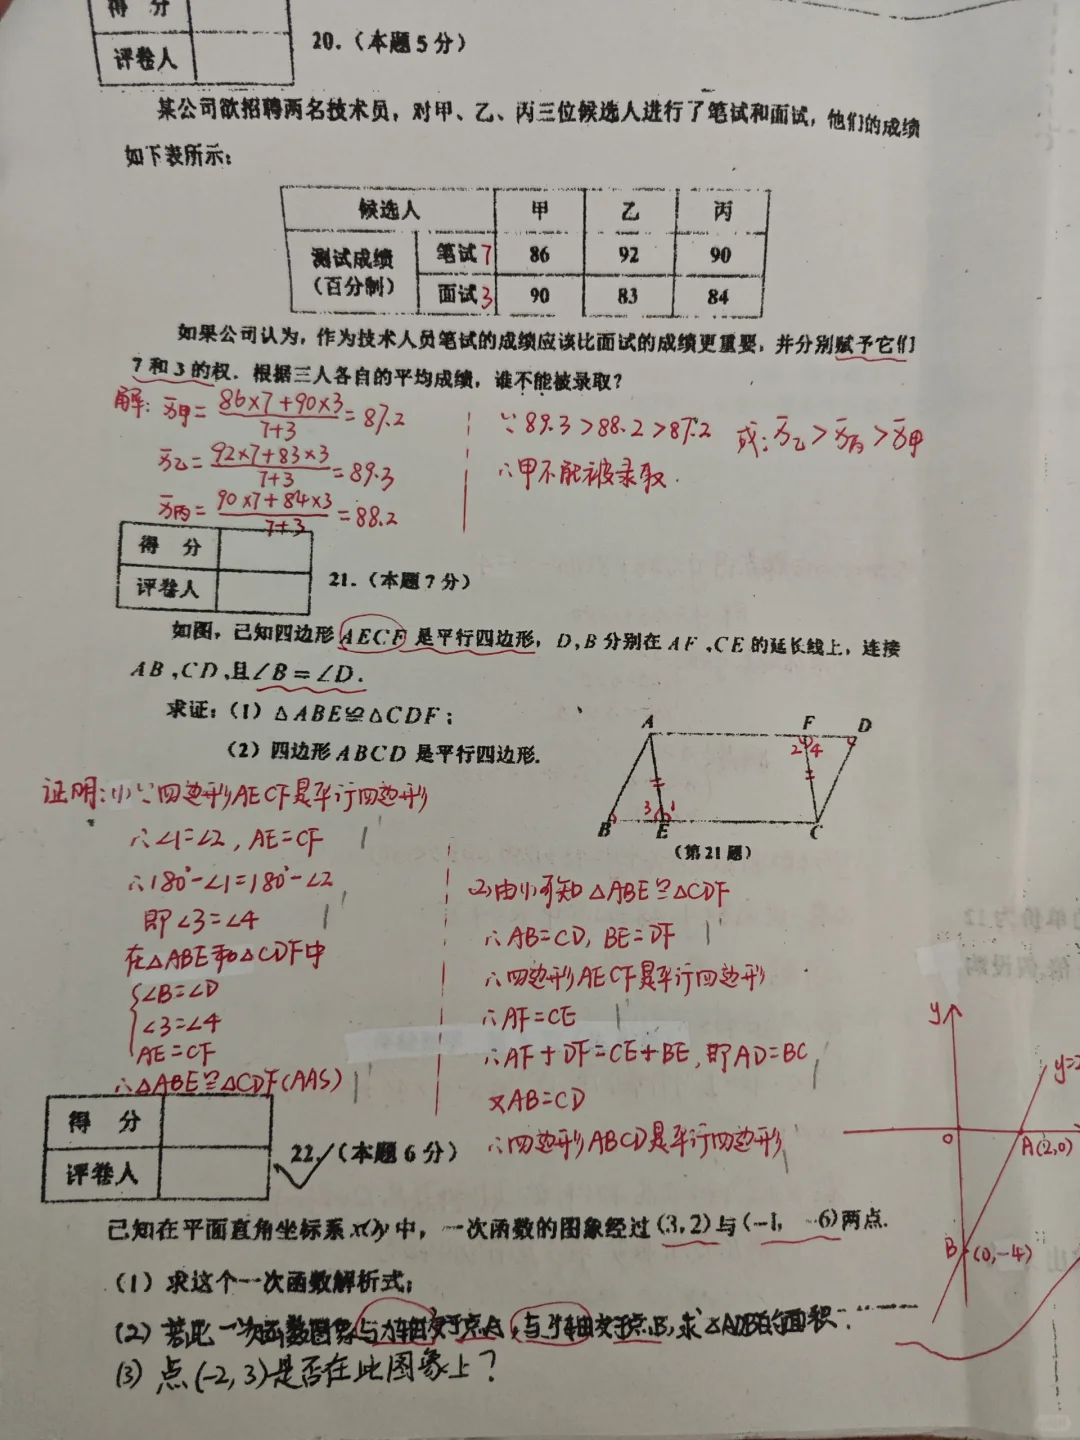 得 分
评卷人
20.（本题5分）
某公司欲招聘两名技术员，对甲、乙、丙三位候选人进行了笔试和面试，他们的成绩
如下表所示：
候选人 甲 乙 丙
测试成绩（百分制） 笔试7 86 92 90
面试3 90 83 84
如果公司认为，作为技术人员笔试的成绩应该比面试的成绩更重要，并分别赋予它们
7和3的权．根据三人各自的平均成绩，谁不能被录取？
解：x̄甲＝(86×7+90×3)/(7+3)＝87.2
x̄乙＝(92×7+83×3)/(7+3)＝89.3
x̄丙＝(90×7+84×3)/(7+3)＝88.2
∵89.3＞88.2＞87.2 或：x̄乙＞x̄丙＞x̄甲
∴甲不能被录取．
得 分
评卷人
21.（本题7分）
如图，已知四边形AECF是平行四边形，D,B分别在AF,CE的延长线上，连接
AB,CD,且∠B＝∠D．
求证：（1）△ABE≌△CDF；
（2）四边形ABCD是平行四边形．
A F D
2 4
3 1
B E C
（第21题）
证明：(1)∵四边形AECF是平行四边形
∴∠1=∠2，AE=CF
∴180°-∠1=180°-∠2
即∠3=∠4
在△ABE和△CDF中
∠B=∠D
∠3=∠4
AE=CF
∴△ABE≌△CDF(AAS)
(2)由(1)可知△ABE≌△CDF
∴AB=CD, BE=DF
∵四边形AECF是平行四边形
∴AF=CE
∴AF+DF=CE+BE,即AD=BC
又AB=CD
∴四边形ABCD是平行四边形
得 分
评卷人
22.（本题6分）
已知在平面直角坐标系xOy中，一次函数的图象经过(3,2)与(-1，-6)两点．
（1）求这个一次函数解析式；
（2）若此一次函数图象与x轴交于点A,与y轴交于点B,求△AOB的面积．
(3) 点(-2,3)是否在此图象上？
y
y=2
O
A(2,0)
B (0,-4)
的单价为12